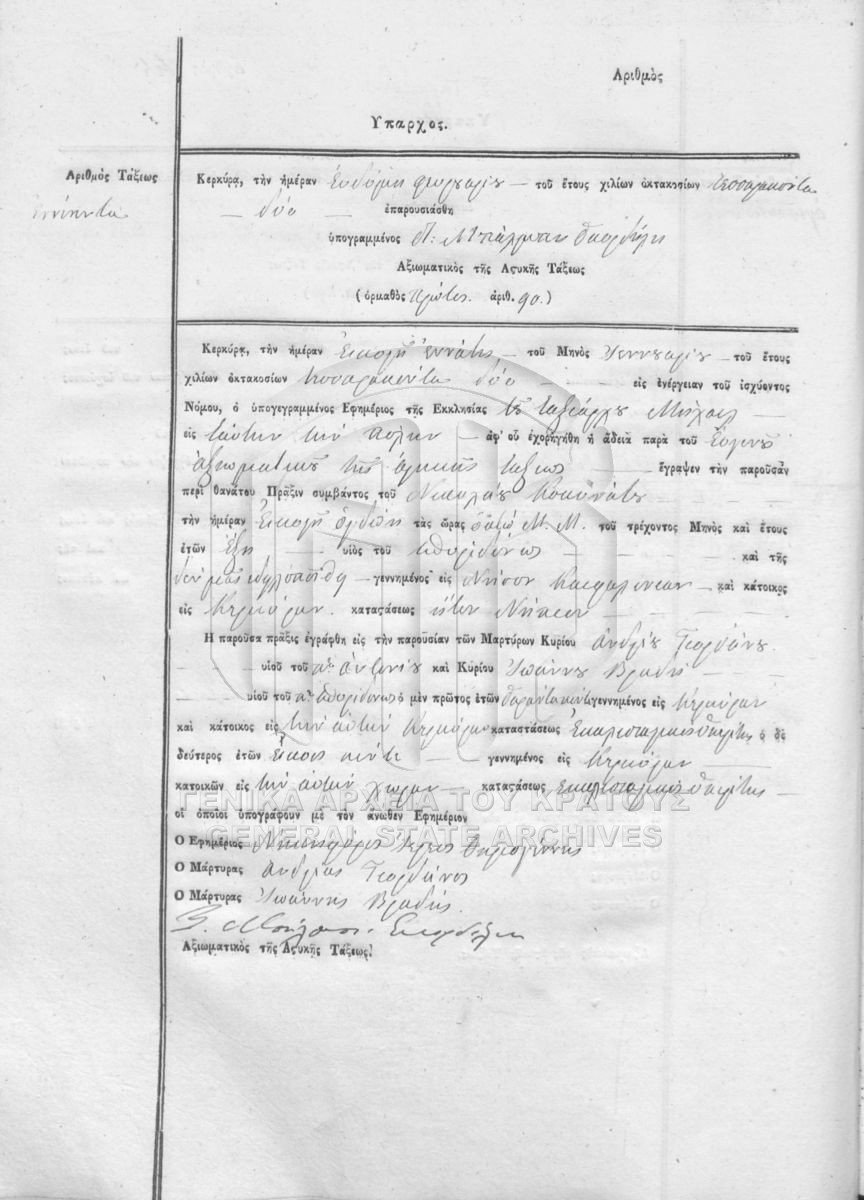 Αριθμὸς
Υπαρχος.
Αριθμὸς Τάξεως
ἐννενῆντα
Κερκύρᾳ, τὴν ἡμέραν ἑβδόμῃ φευρουαρίου — τοῦ ἔτους χιλίων ὀκτακοσίων τεσσαρακόντα
— δύο — ἐπαρουσιάσθη
ὑπογραμμένος
Αξιωματικὸς τῆς Αςυκῆς Τάξεως
(ὁρμαθὸς πρῶτος. ἀριθ. 90.)
Κερκύρᾳ, τὴν ἡμέραν Εἰκοστῇ ἐννάτῃ — τοῦ Μηνὸς Ἰεννουαρίου — τοῦ ἔτους
χιλίων ὀκτακοσίων τεσσαρακόντα δύο εἰς ἐνέργειαν τοῦ ἰσχύοντος
Νόμου, ὁ ὑπογεγραμμένος Εφημέριος τῆς Εκκλησίας τοῦ ταξιάρχου Μιχαὴλ —
εἰς ταύτην τὴν πόλιν — ἀφ' οὗ ἐχορηγήθη ἡ ἄδεια παρὰ τοῦ Εὐγενοῦς
ἀξιωματικοῦ τῆς ἀςυκῆς τάξεως — ἔγραψεν τὴν παροῦσαν
περὶ θανάτου Πρᾶξιν συμβάντος τοῦ Νικολάου
τὴν ἡμέραν Εἰκοστῇ ὀγδόῃ τὰς ὥρας ὀκτὼ Μ. Μ. τοῦ τρέχοντος Μηνὸς καὶ ἔτους
ἐτῶν ἕξη — υἱὸς τοῦ σπυρίδωνος — καὶ τῆς
δὲν μᾶς ἐδηλοποιήθη — γεννημένος εἰς Νῆσον Κεφαλονίαν — καὶ κάτοικος
εἰς Κερκύραν. καταςάσεως ἦτον Νήπιον
Η παροῦσα πρᾶξις ἐγράφθη εἰς τὴν παρουσίαν τῶν Μαρτύρων Κυρίου ἀνδρέου Γιορδάνου
υἱοῦ τοῦ πο: ἀντωνίου καὶ Κυρίου Ἰωάννου Βραδῆ —
υἱοῦ τοῦ πο: σπυρίδωνος ὁ μὲν πρῶτος ἐτῶν σαράντα πέντε γεννημένος εἰς Κερκύραν
καὶ κάτοικος εἰς τὴν αὐτὴν Κερκύραν καταστάσεως Ἐκκλησιαστικὸς ὑπηρέτης ὁ δὲ
δεύτερος ἐτῶν εἴκοσι πέντε — γεννημένος εἰς Κερκύραν —
κατοικῶν εἰς τὴν αὐτὴν χώραν — καταςάσεως Ἐκκλησιαστικὸς ὑπηρέτης —
οἱ ὁποῖοι ὑπογράφουν μὲ τὸν ἄνωθεν Εφημέριον
Ο Εφημέριος Νικηφόρος Ἱερεὺς
Ο Μάρτυρας ἀνδρέας Γιορδάνος
Ο Μάρτυρας Ἰωάννης Βραδῆς.
Αξιωματικὸς τῆς Αςυκῆς Τάξεως.
ΓΕΝΙΚΑ ΑΡΧΕΙΑ ΤΟΥ ΚΡΑΤΟΥΣ
GENERAL STATE ARCHIVES